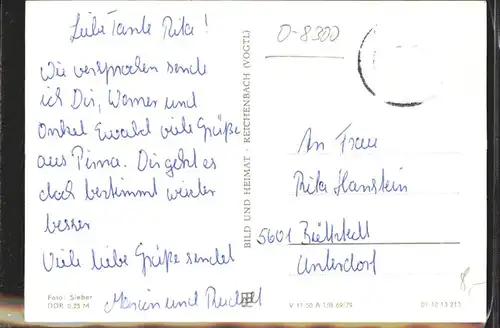 Liebe Tante Rita!
Wie versprochen sende
ich Dir, Werner und
Onkel Ewald viele Grüße
aus Pirna. Dir geht es
doch bestimmt wieder
besser
Viele liebe Grüße sendet
Marion und
Foto: Sieber
DDR 0,25 M
BILD UND HEIMAT · REICHENBACH (VOGTL)
O-8300
An Frau
Rita Hanstein
5601 Büttstedt
Unterdorf
8,-
V 11 50 A 1/B 69/79
01 12 13 213